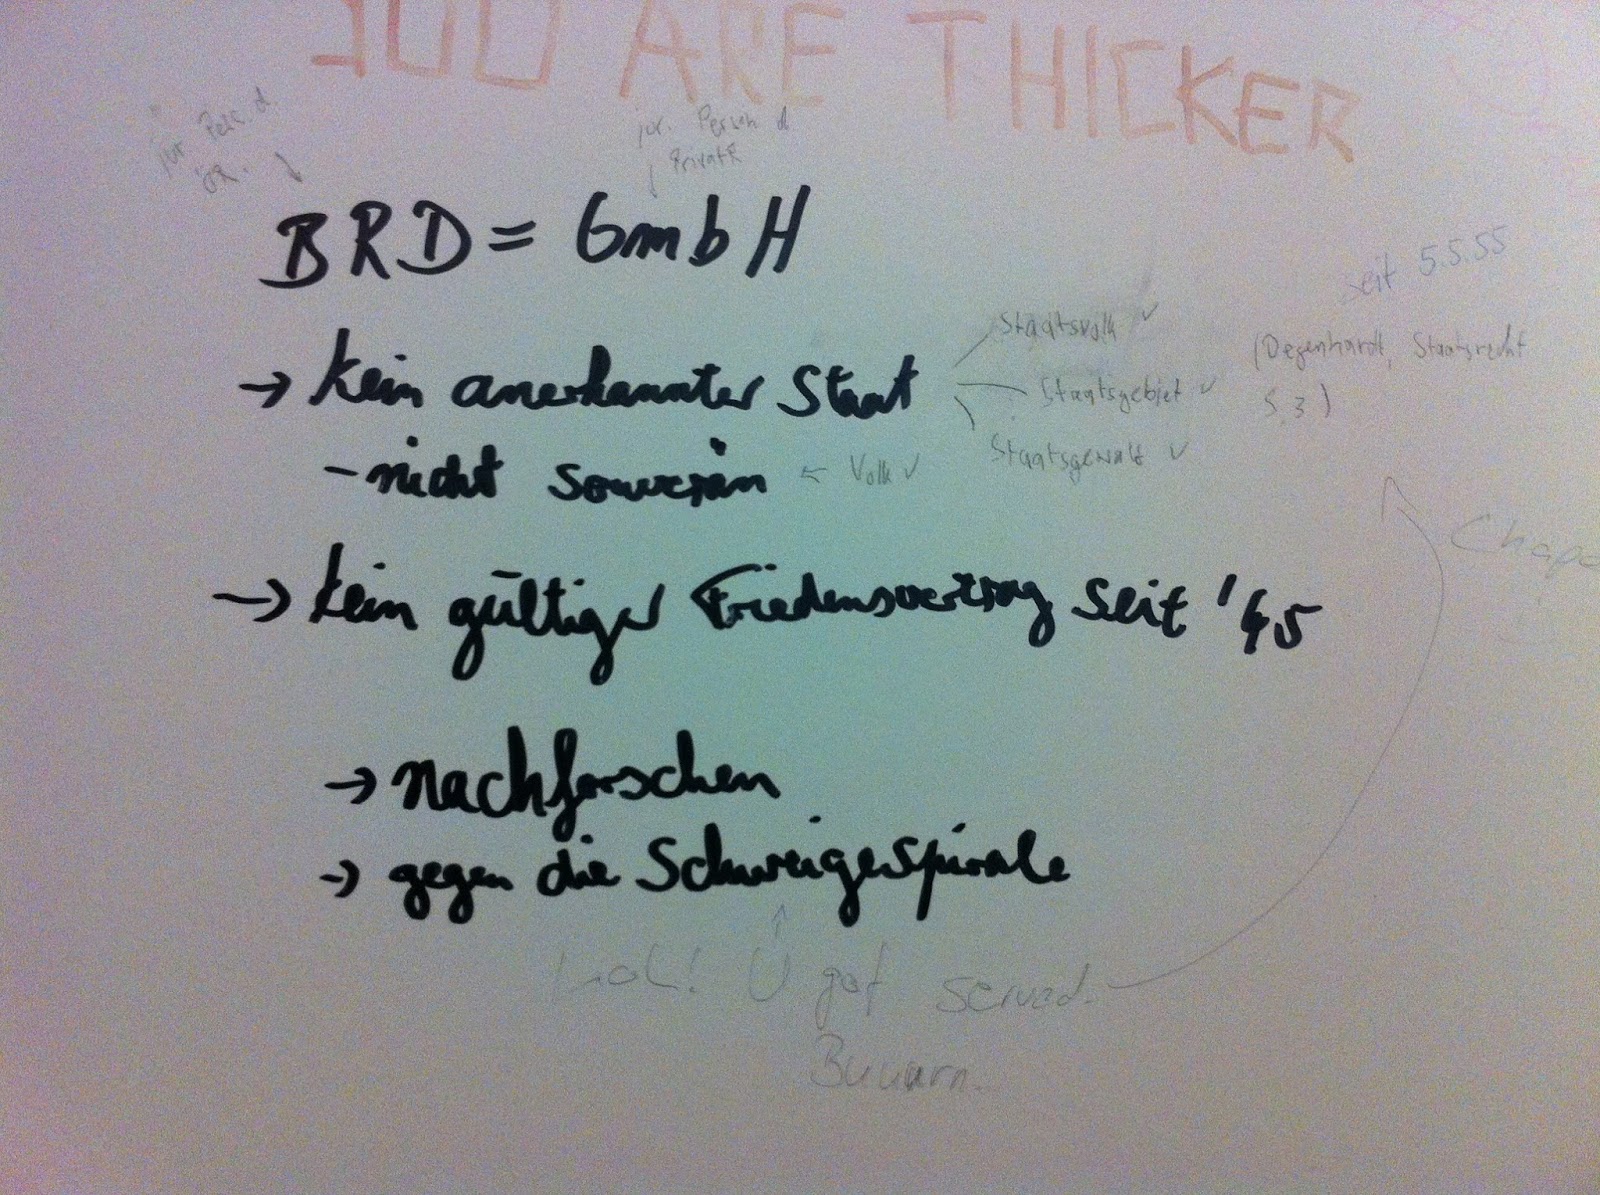 YOU ARE THICKER
jur. Pers. d.
ÖR.
jur. Person d
PrivatR
BRD = GmbH
seit 5.5.55
→ kein anerkannter Staat
Staatsvolk ✓
Staatsgebiet ✓
Staatsgewalt ✓
(Degenhardt, Staatsrecht
S. 3)
- nicht souverän ← Volk ✓
→ kein gültiger Friedensvertrag seit '45
→ nachforschen
→ gegen die Schweigespirale
LoL! U got served.
Buuurn.